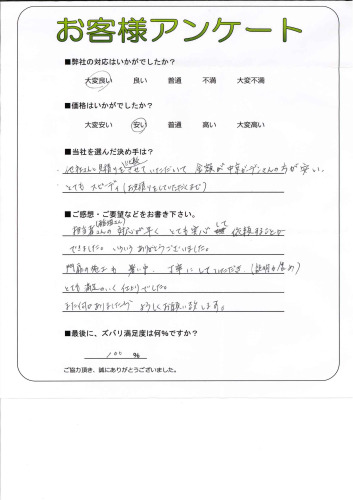 お客様アンケート
■弊社の対応はいかがでしたか？
大変良い 良い 普通 不満 大変不満
■価格はいかがでしたか？
大変安い 安い 普通 高い 大変高い
■当社を選んだ決め手は？
比較
他社さんに見積りをさせていただいて 金額が中京ガーデンさんの方が安い、
とても スピーディ(お見積りをしていただくまで)
■ご感想・ご要望などをお書き下さい。
担当者さんの 対応が早く とても安心して 依頼することが
できました。いろいろ ありがとうございました。
門扉の施工も 暑い中、丁寧にしていただき、(説明も含め)
とても 満足のいく 仕上りでした。
また何かありましたら よろしくお願い致します。
■最後に、ズバリ満足度は何％ですか？
100 ％
ご協力頂き、誠にありがとうございました。